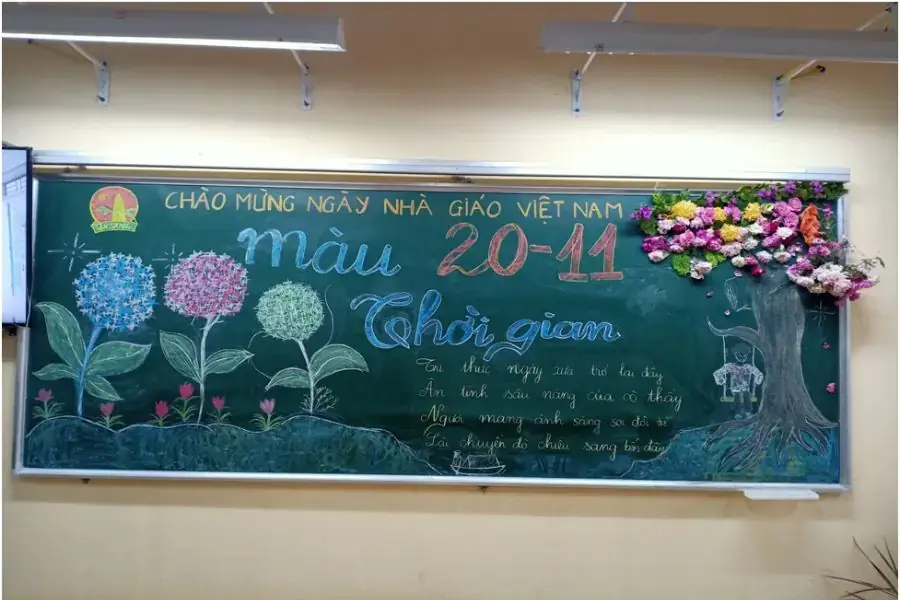 CHÀO MỪNG NGÀY NHÀ GIÁO VIỆT NAM
20-11
màu
Thời gian
Tri thức ngày xưa trở lại đây
Ân tình sâu nặng của cô thầy
Người mang ánh sáng soi đời
Lái chuyến đò chiều sang bến đây